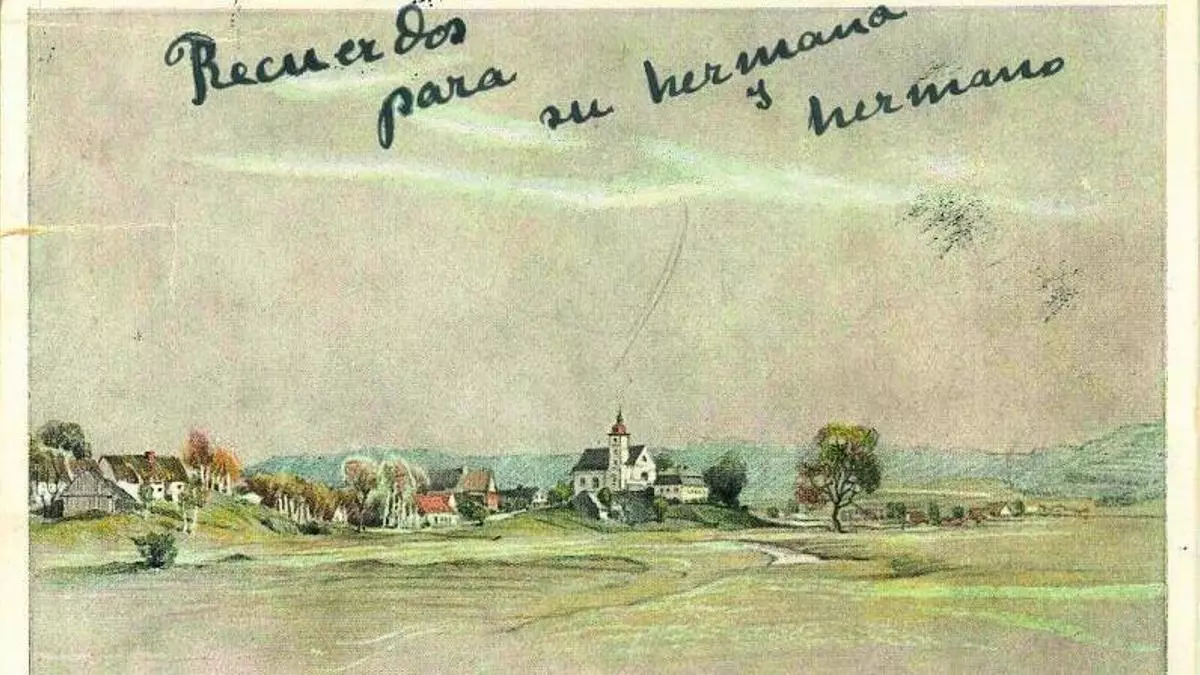 Recuerdos
para su hermana
y hermano